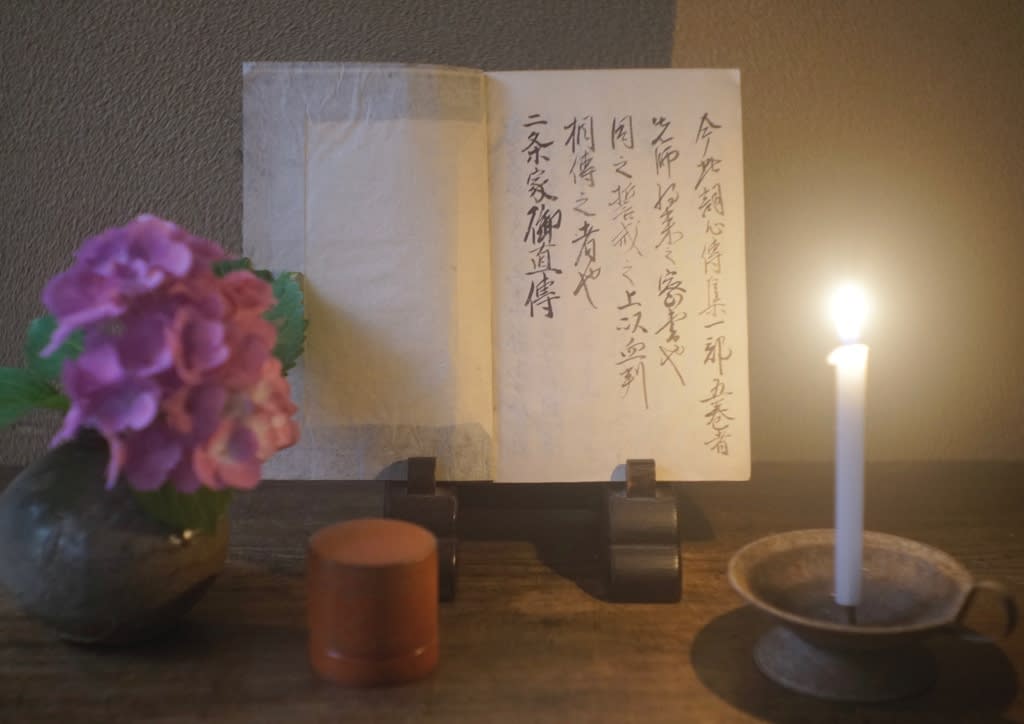 今此朝心傳集一部五卷者
先師好来之密書也
因之誓戒之上以血判
相傳之者也
二条家御直傳